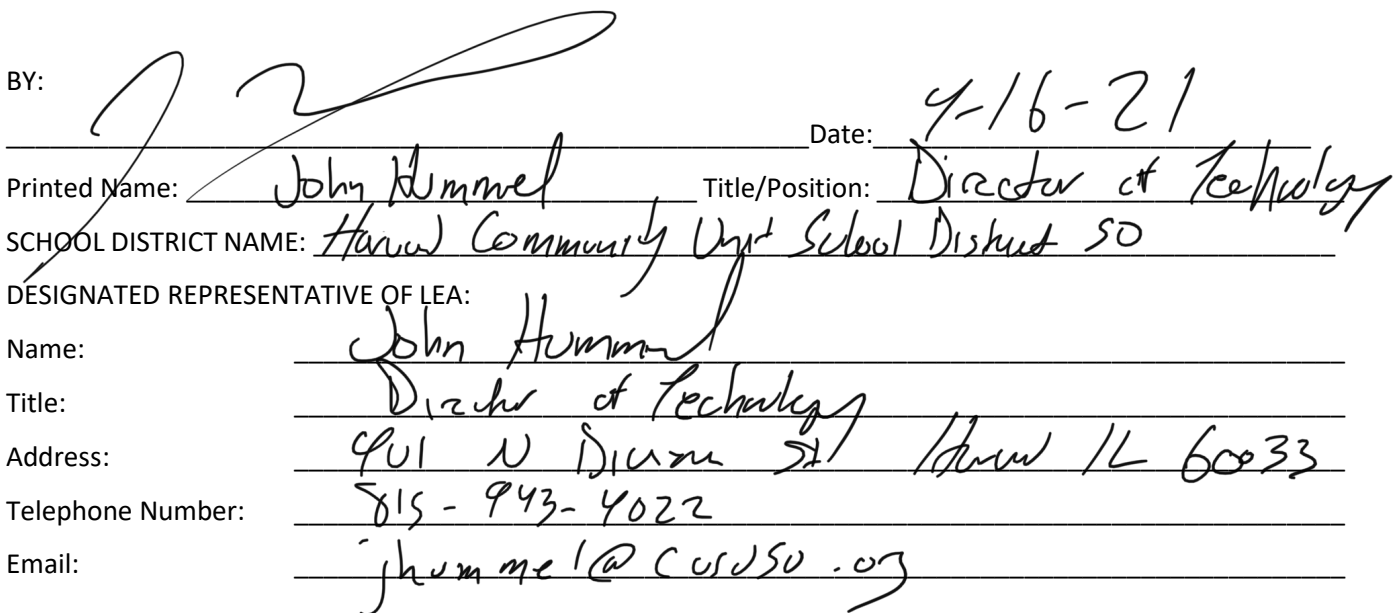 BY:
Date: 4-16-21
Printed Name: John Hummel Title/Position: Director of Technology
SCHOOL DISTRICT NAME: Harvard Community Unit School District 50
DESIGNATED REPRESENTATIVE OF LEA:
Name: John Hummel
Title: Director of Technology
Address: N Division St Harvard IL 60033
Telephone Number: 815-943-4022
Email: jhummel@cusd50.org